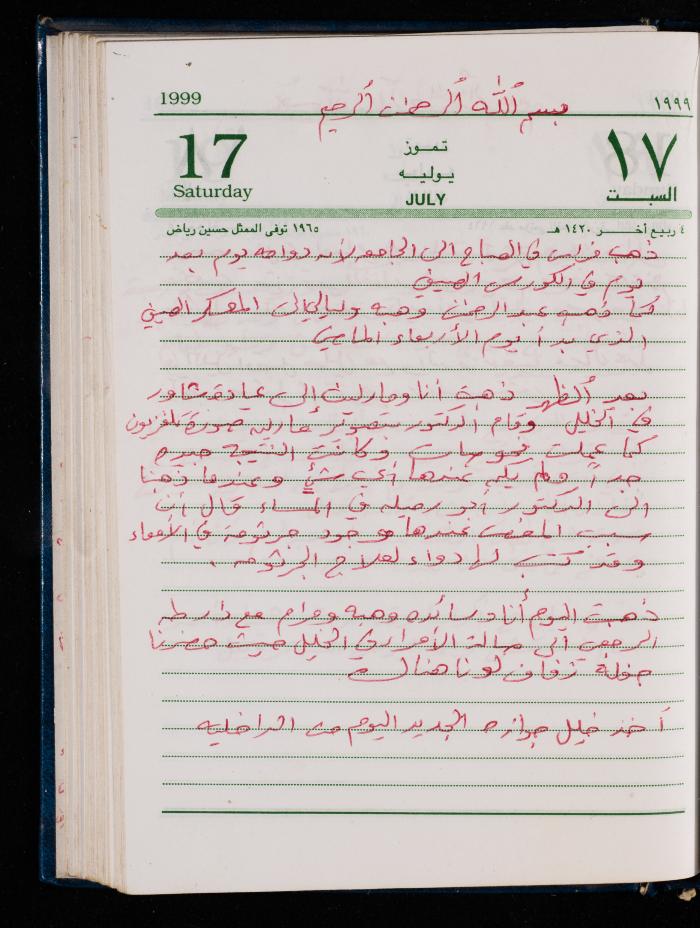 1999
١٩٩٩
بسم الله الرحمن الرحيم
17
تموز
١٧
Saturday
يوليه
السبت
JULY
٤ ربيع آخر ١٤٢٠ هـ
١٩٦٥ توفى الممثل حسين رياض
ذهب فراس في الصباح الى الجامعه لأنه دوامه يوم بعد
يوم في الكورس الصيفي
كما ذهب عبد الرحمن وهبه وليالي الى المعسكر الصيفي
الذي بدأ يوم الأربعاء الماضي
بعد الظهر ذهبت أنا ومارليت إلى عيادة شاور
في الخليل وقام الدكتور بتصوير صورة تلفزيون
كما عملت فحوصات وكانت النتيجة جيده
جداً ولم يكن عندها أي شئ وعندما ذهبنا
الى الدكتور أبو رميله في المساء قال أن
سبب المغص عندها هو وجود جرثومة في الأمعاء
وقد كتب لها دواء لعلاج الجرثومه .
ذهبت اليوم أنا وسائده وهبه ومرام مع دار طه
الرجعي الى صالة الأمراء في الخليل حيث حضرنا
حفلة زفاف لونا هناك
أخذ خليل جوازه الجديد اليوم من الداخليه